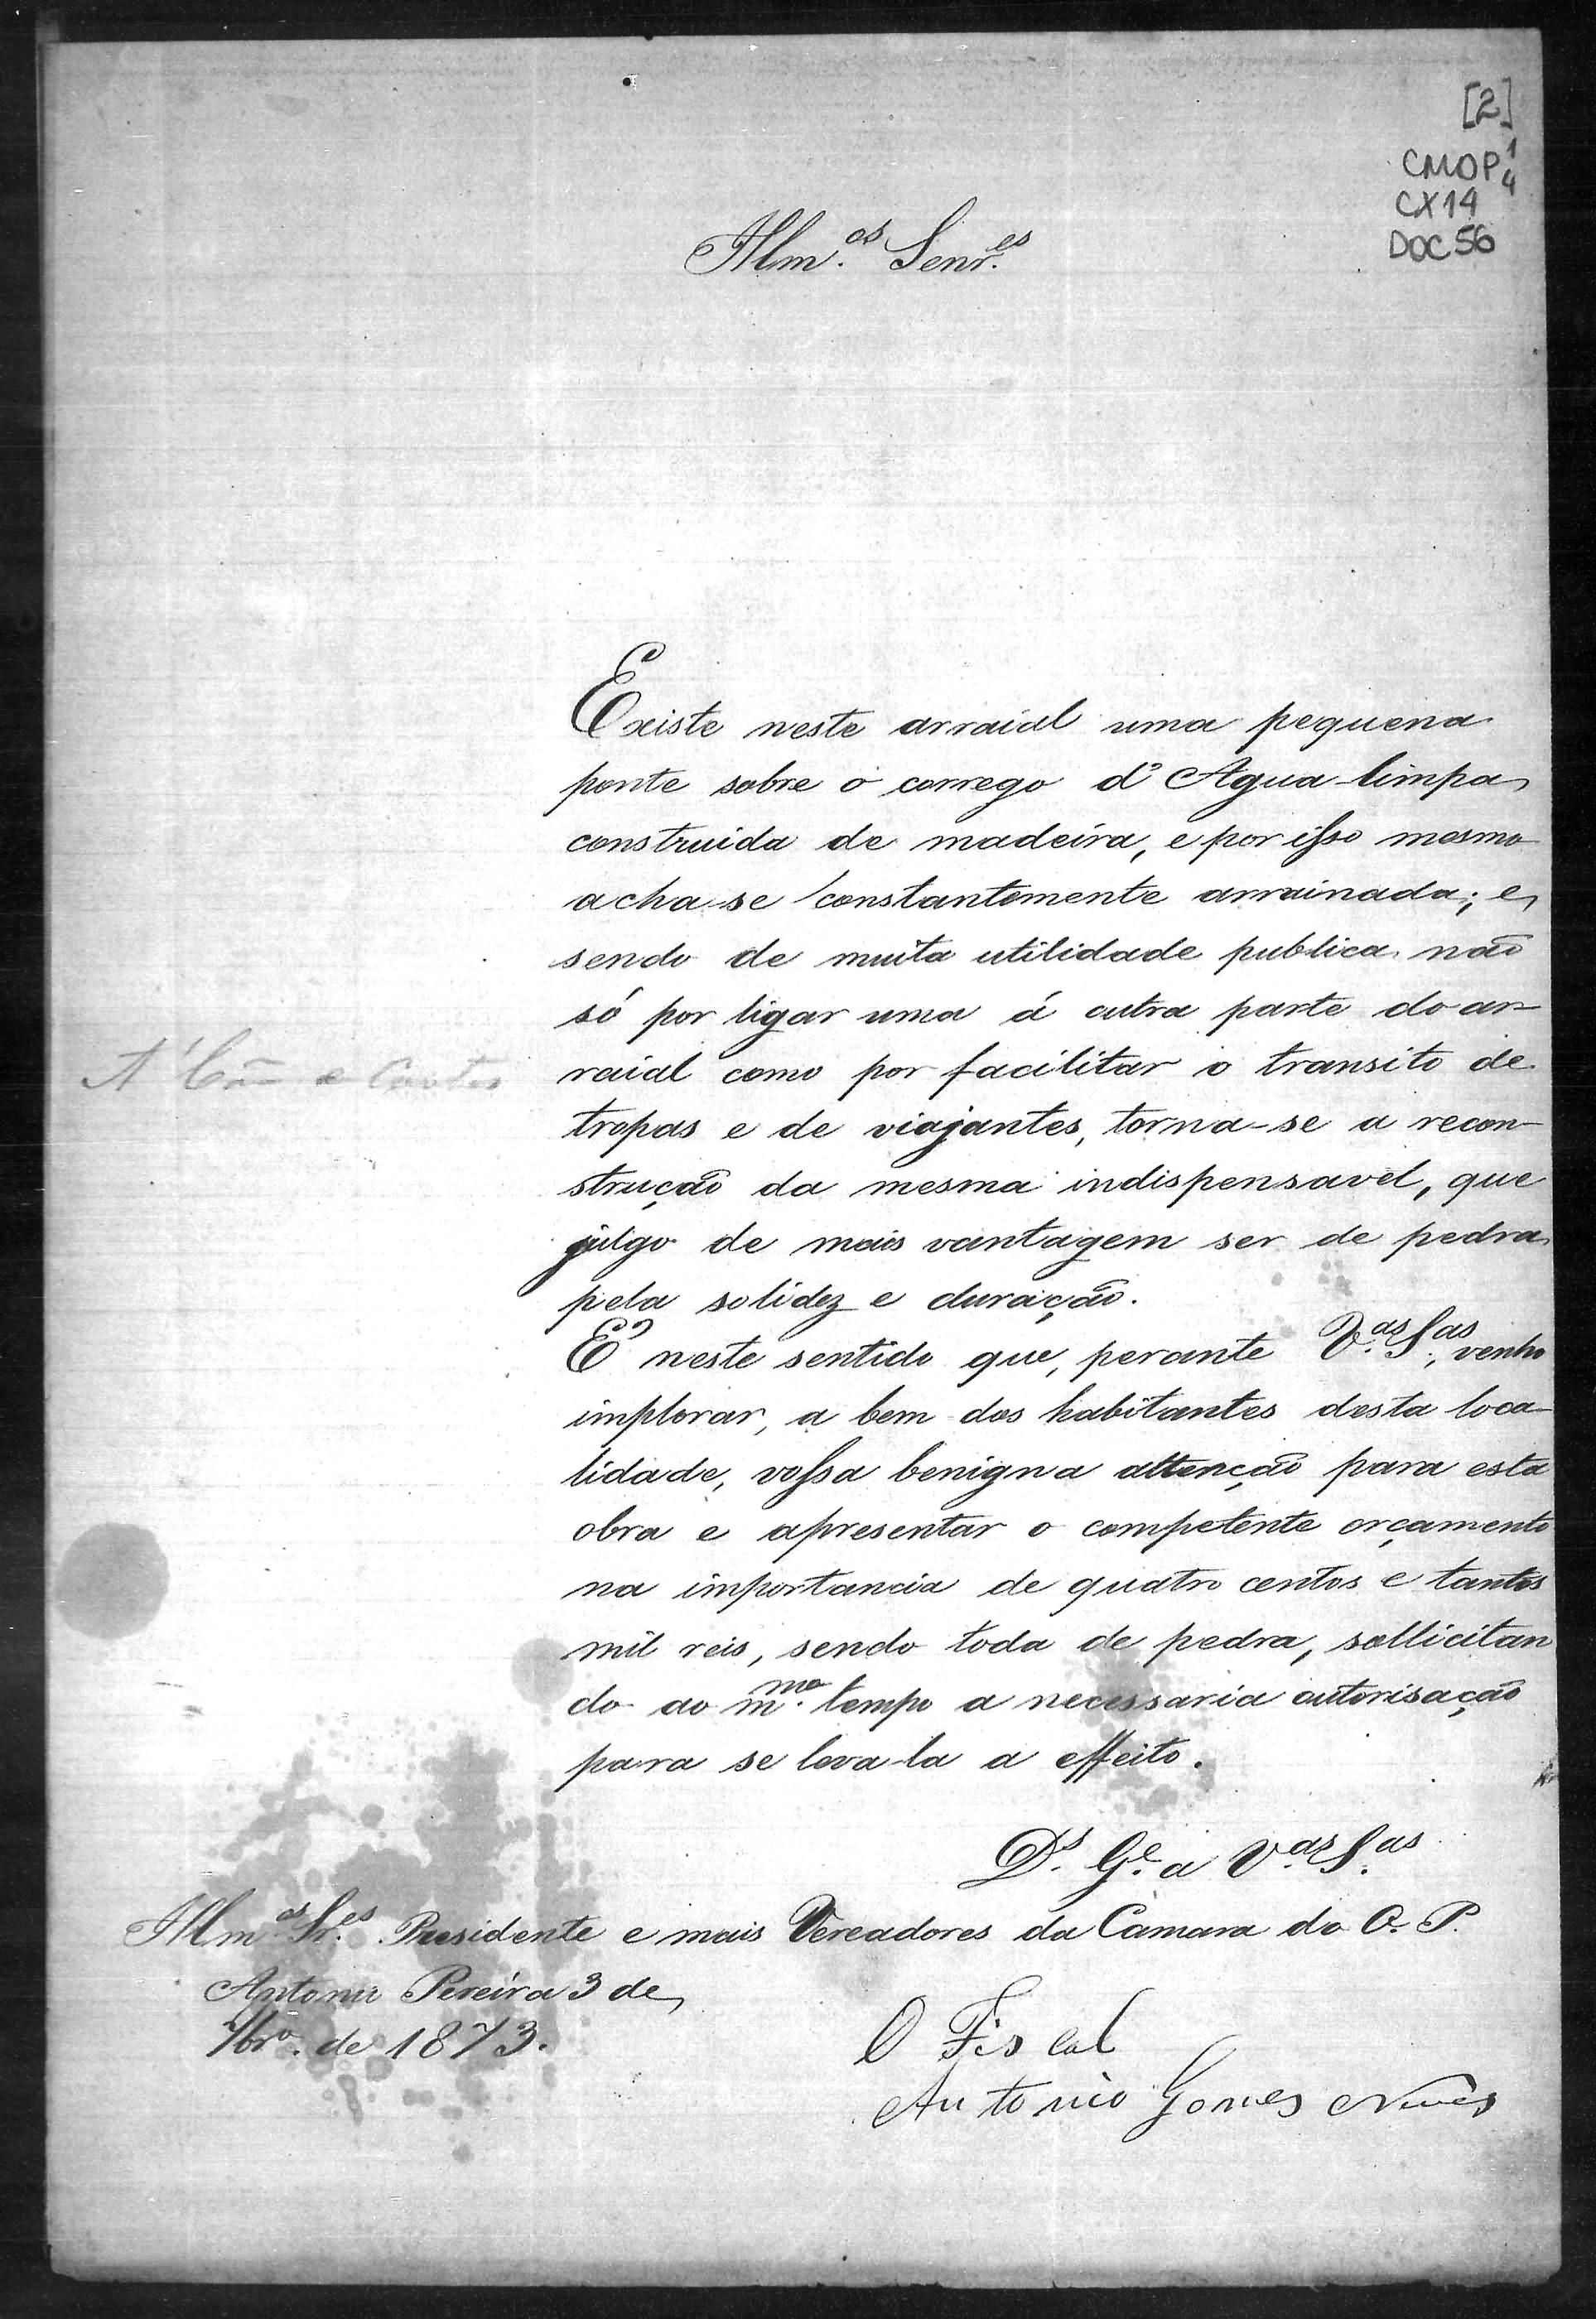 [2]
CMOP 1
4
CX19
DOC 56
Illm.os Senr.es
Existe neste arraial uma pequena
ponte sobre o corrego d'Agua limpa,
construida de madeira, e por isso mesmo
acha-se constantemente arruinada; e,
sendo de muita utilidade publica não
só por ligar uma á outra parte do ar-
raial como por facilitar o transito de
A' Com e Contas
tropas e de viajantes, torna-se a recon-
strução da mesma indispensavel, que
julgo de mais vantagem ser de pedra
pela solidez e duração.
É neste sentido que, perante V.as S.as, venho
implorar, a bem dos habitantes desta loca-
lidade, vossa benigna attenção para esta
obra e apresentar o competente orçamento
na importancia de quatro centos e tantos
mil reis, sendo toda de pedra, sollicitan
do ao m.mo tempo a necessaria autorisação
para se leva-la a effeito.
D.s G.e a V.as S.as
Illm.os Sr.es Presidente e mais Vereadores da Camara do O. P.
Antonio Pereira 3 de
7bro. de 1873.
O Fiscal
Antonio Gomes Neves